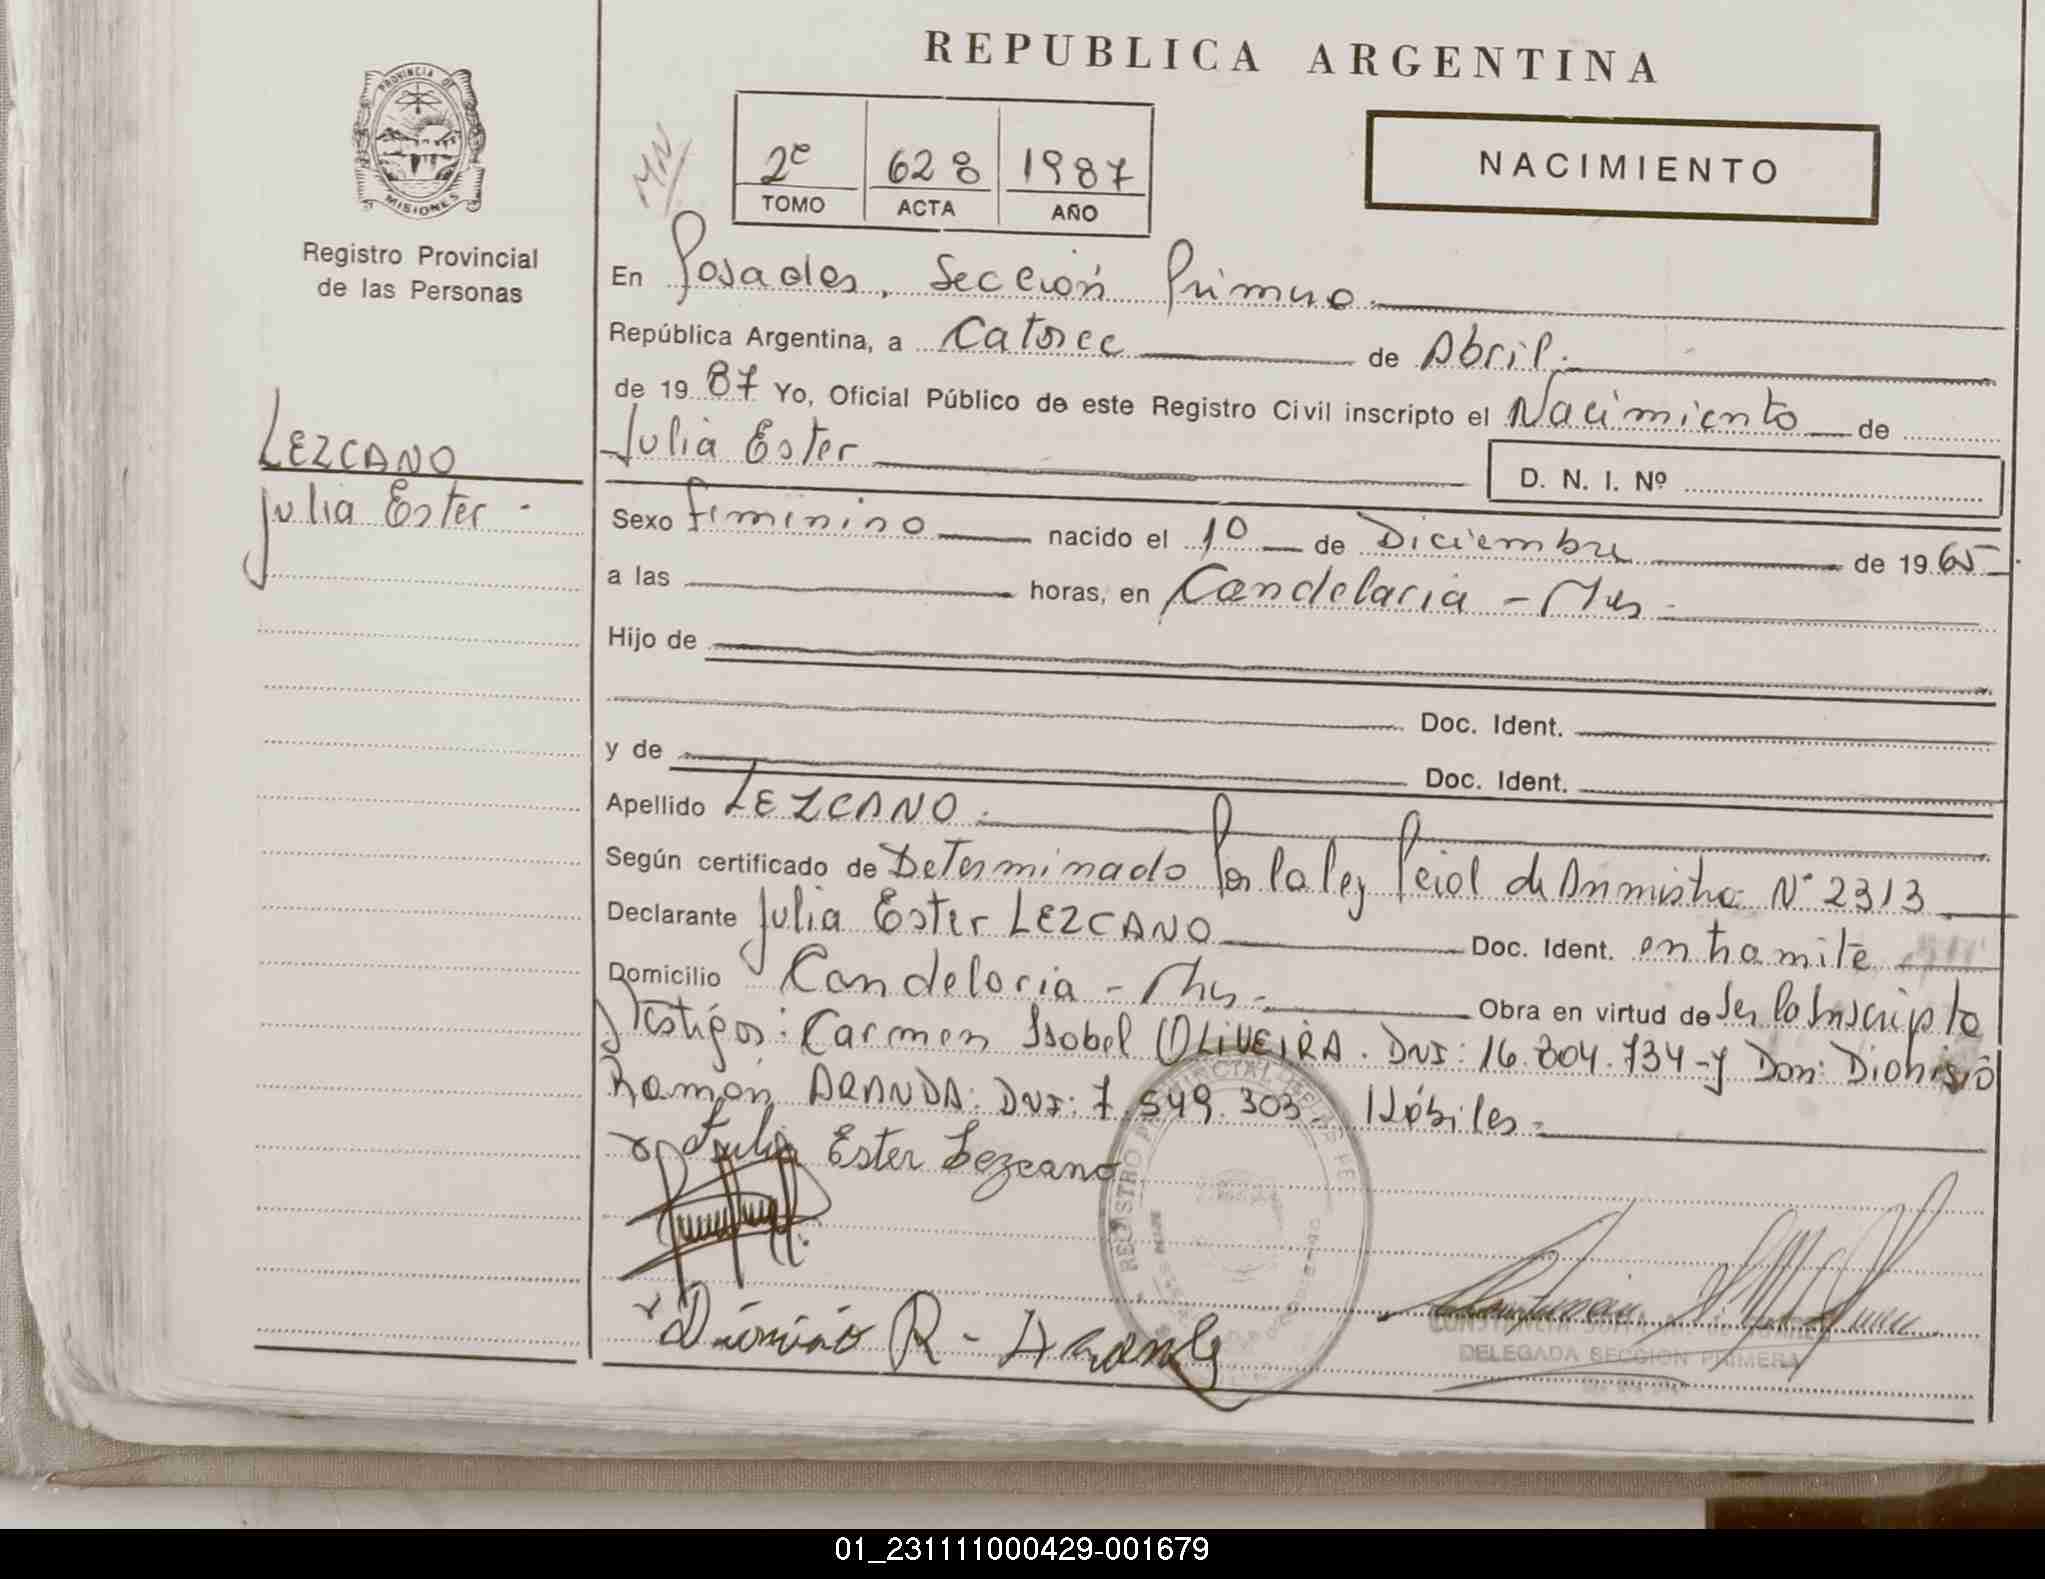 REPUBLICA ARGENTINA
PROVINCIA DE
MISIONES
Registro Provincial
de las Personas
MN
2º 628 1987
TOMO ACTA AÑO
NACIMIENTO
En Posadas, Sección Primera.
República Argentina, a Catorce de Abril.
de 19 87 Yo, Oficial Público de este Registro Civil inscripto el Nacimiento de
Julia Ester
D. N. I. Nº
LEZCANO
Julia Ester -
Sexo Femenino nacido el 10 de Diciembre de 19 65
a las horas, en Candelaria - Mns -
Hijo de
Doc. Ident.
y de Doc. Ident.
Apellido LEZCANO.
Según certificado de Determinado Por la ley Pcial de Amnistia Nº 2313
Declarante Julia Ester LEZCANO Doc. Ident. en tramite
Domicilio Candelaria - Mns - Obra en virtud de Ser la Inscripta
Testigos: Carmen Isabel OLIVEIRA. DNI: 16.804.734 - y Don: Dionisio
Ramón ARANDA: DNI: 7.549.303. Hábiles -
Julia Ester Lezcano
Dionisio R - Aranda
REGISTRO PROVINCIAL DE LAS PE
DELEGADA SECCION PRIMERA
01_231111000429-001679